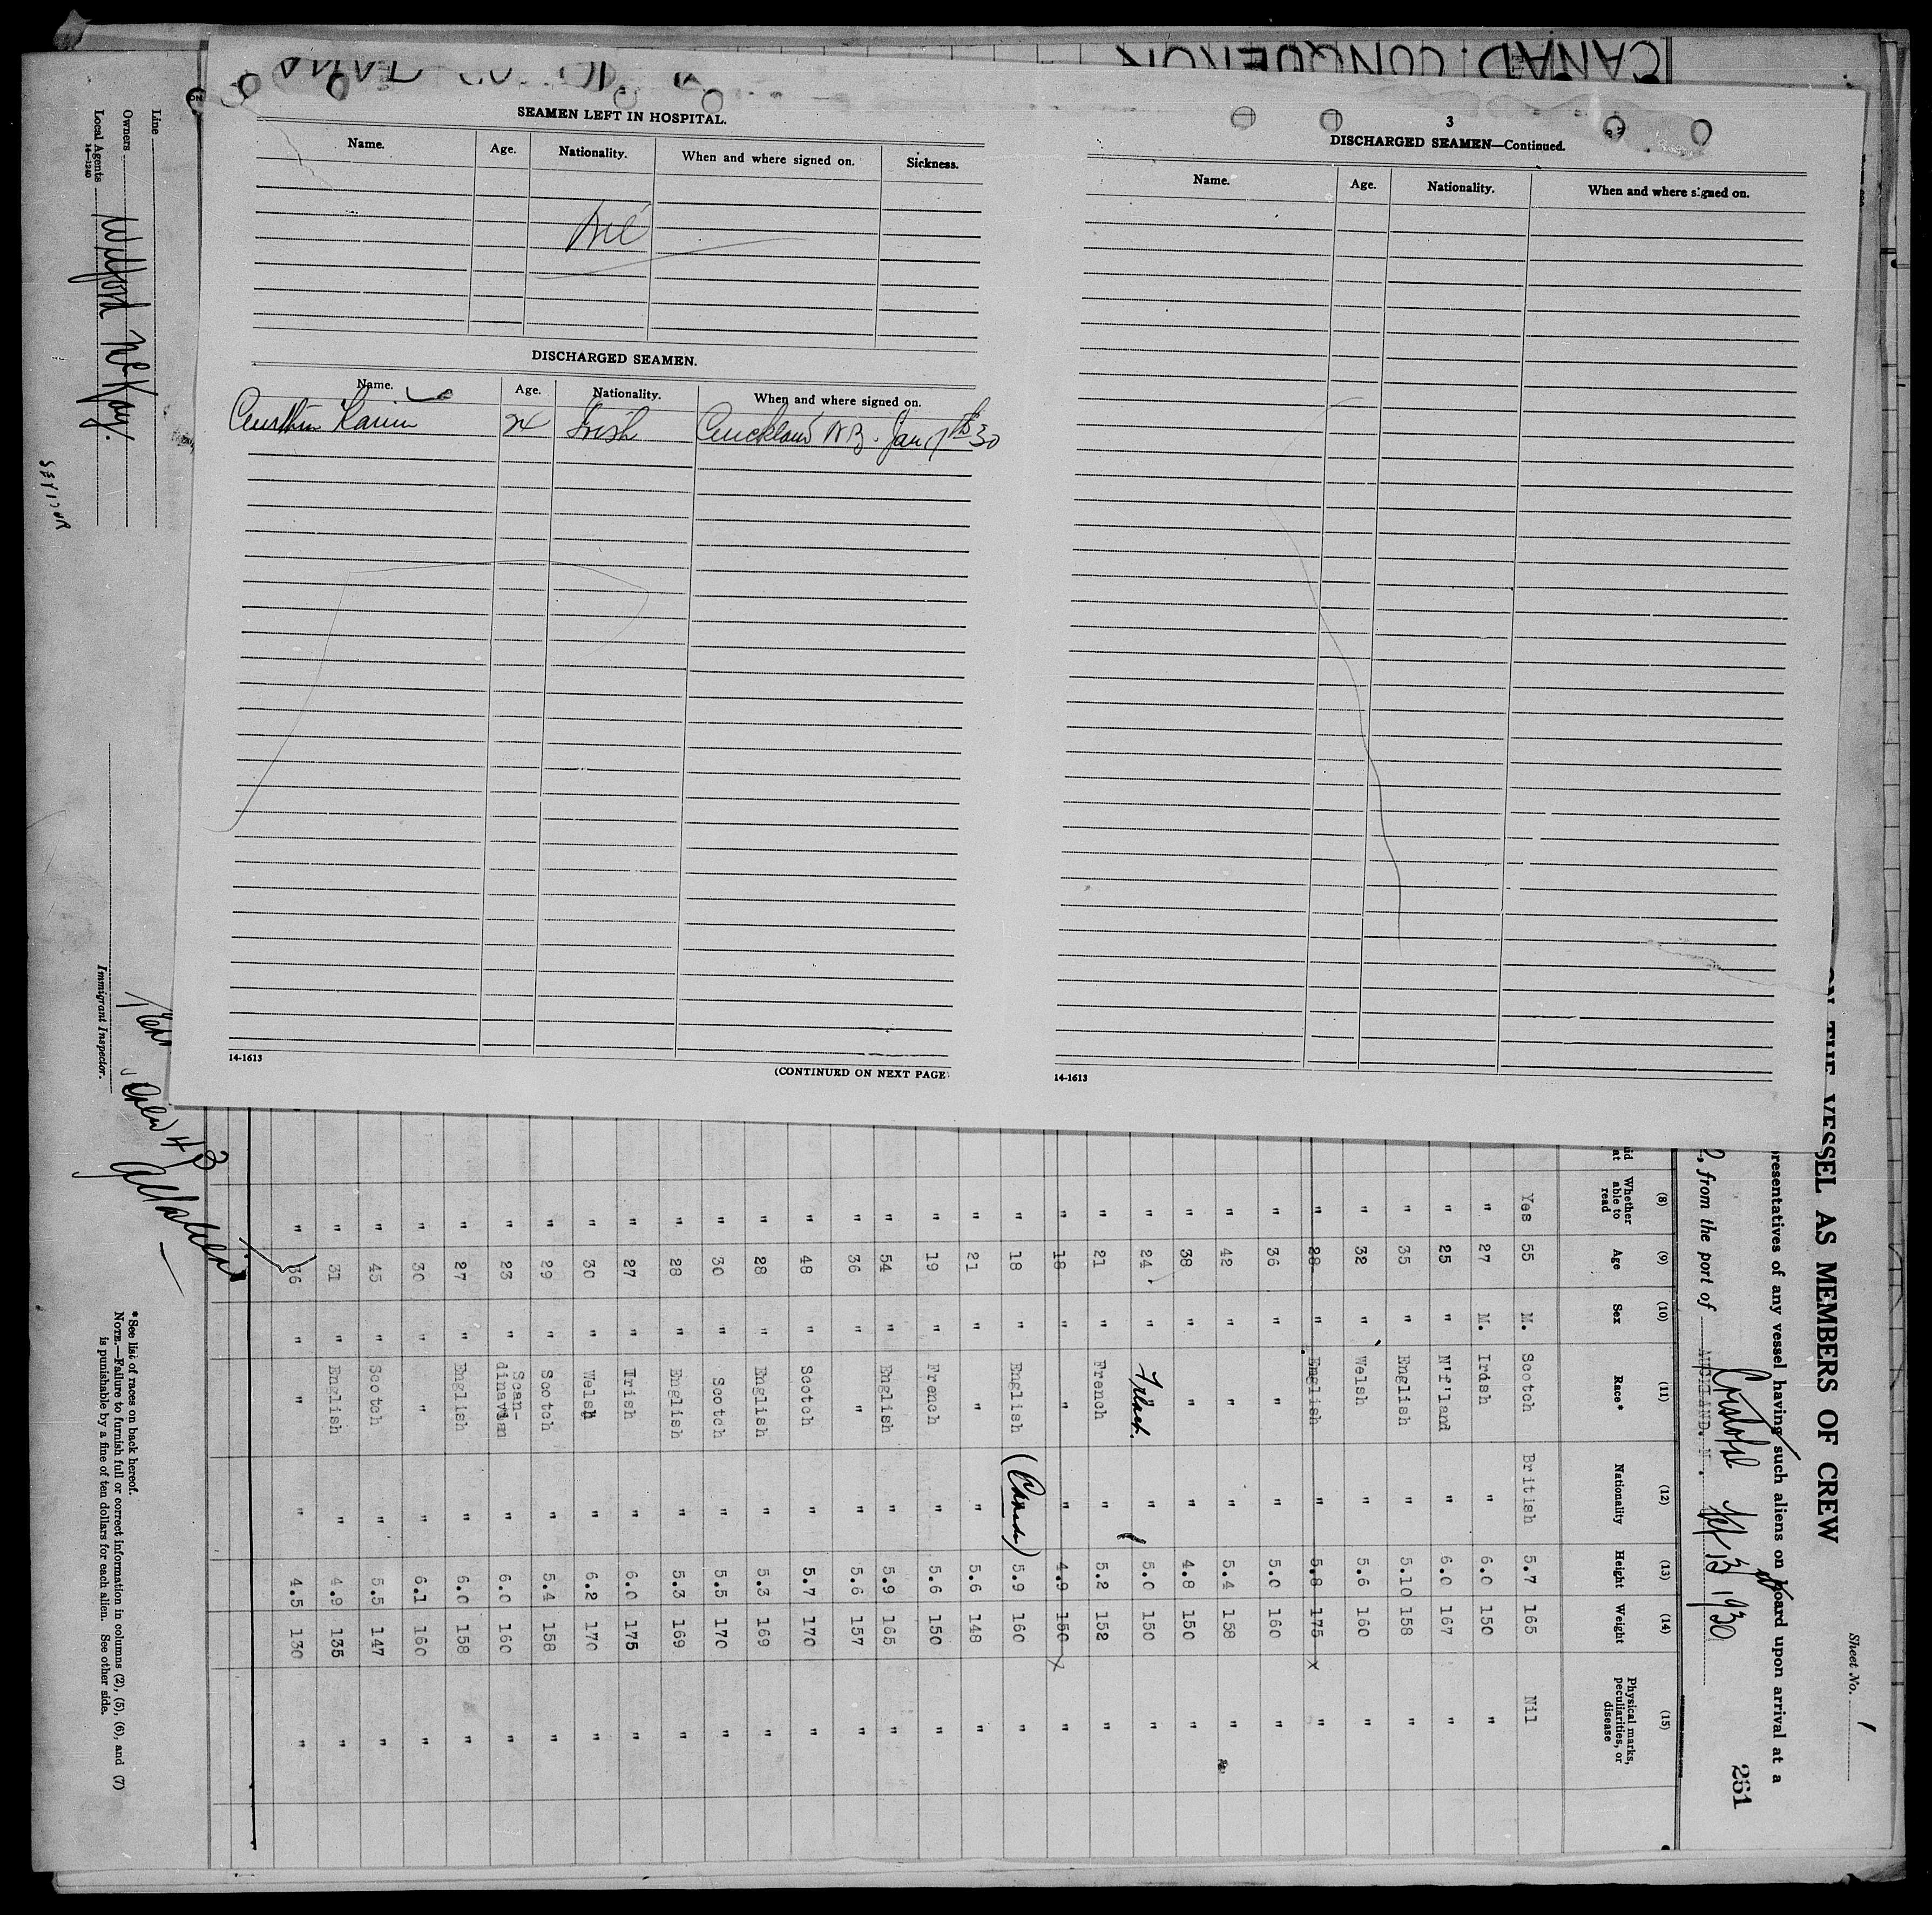 CANAD. CONQUEROR
SEAMEN LEFT IN HOSPITAL.
Name. Age. Nationality. When and where signed on. Sickness.
Nil
DISCHARGED SEAMEN.
Name. Age. Nationality. When and where signed on.
24 Irish Auckland N Z. Jan 30
14-1613
(CONTINUED ON NEXT PAGE
3
DISCHARGED SEAMEN—Continued.
Name. Age. Nationality. When and where signed on.
14-1613
Line
Owners
Local Agents
14-1240
Wilford McKay.
Immigrant Inspector.
Sheet No. 1
261
ON THE VESSEL AS MEMBERS OF CREW
resentatives of any vessel having such aliens on board upon arrival at a
, from the port of AUCKLAND. Cristobal 1930
(8) (9) (10) (11) (12) (13) (14) (15)
Whether able to read Age Sex Race* Nationality Height Weight Physical marks, peculiarities, or disease
Yes 55 M. Scotch British 5.7 165 Nil
" 27 M. Irish " 6.0 150 "
" 25 " N'f'land " 6.0 167 "
" 35 " English " 5.10 158 "
" 32 " Welsh " 5.6 160 "
" 28 " English " 5.8 175 x "
" 36 " " " 5.0 160 "
" 42 " " " 5.4 158 "
" 38 " " " 4.8 150 "
" 24 " " 5.0 150 "
" 21 " French " 5.2 152 "
" 18 " " " 4.9 150 x "
" 18 " English (Canada) 5.9 160 "
" 21 " " " 5.6 148 "
" 19 " French " 5.6 150 "
" 54 " English " 5.9 165 "
" 36 " " " 5.6 157 "
" 48 " Scotch " 5.7 170 "
" 28 " English " 5.3 169 "
" 30 " Scotch " 5.5 170 "
" 28 " English " 5.3 169 "
" 27 " Irish " 6.0 175 "
" 30 " Welsh " 6.2 170 "
" 29 " Scotch " 5.4 158 "
" 23 " Scandinavian " 6.0 160 "
" 27 " English " 6.0 158 "
" 30 " " " 6.1 160 "
" 45 " Scotch " 5.5 147 "
" 31 " English " 4.9 135 "
" 36 " " " 4.5 130 "
* See list of races on back hereof.
NOTE.—Failure to furnish full or correct information in columns (2), (5), (6), and (7)
is punishable by a fine of ten dollars for each alien. See other side.